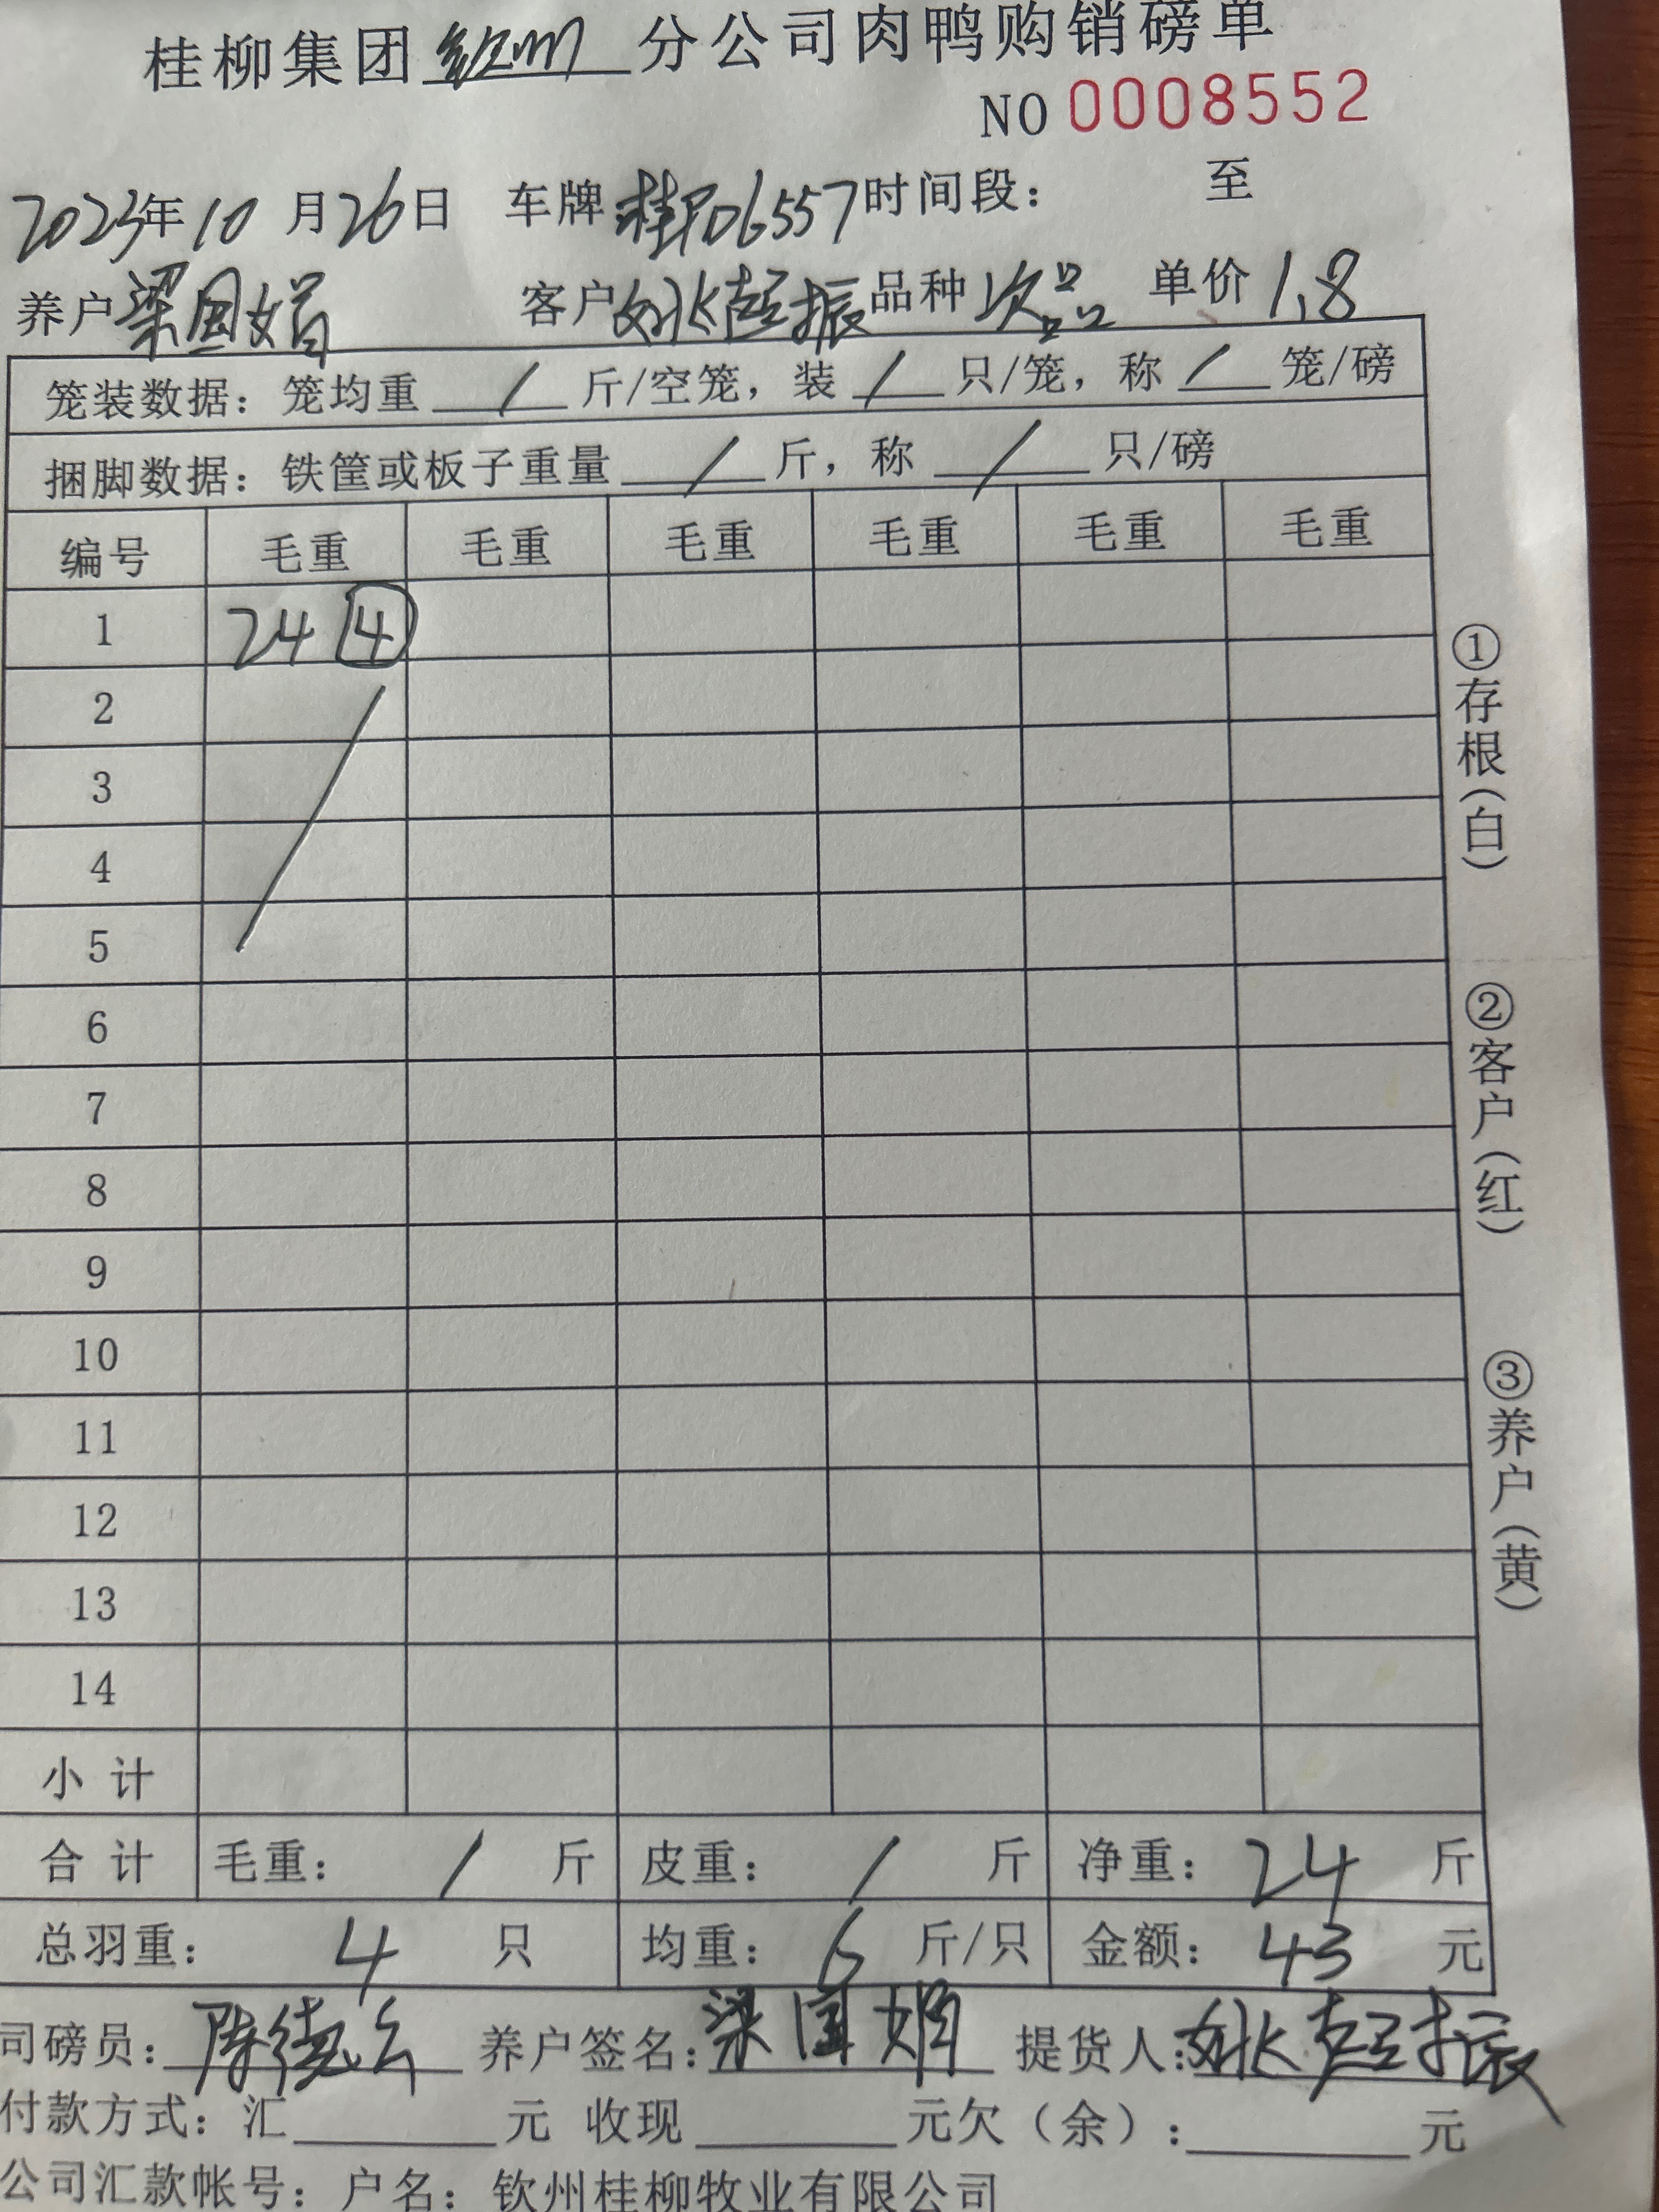 桂柳集团钦州分公司肉鸭购销磅单
NO 0008552
2023年10月26日 车牌:桂P06557 时间段: 至
养户梁国娟 客户姚超振 品种次品 单价1.8
笼装数据:笼均重 / 斤/空笼,装 / 只/笼,称 / 笼/磅
捆脚数据:铁筐或板子重量 / 斤,称 / 只/磅
编号 毛重 毛重 毛重 毛重 毛重 毛重
1 24 4
2
3
4
5
6
7
8
9
10
11
12
13
14
小计
合计 毛重: / 斤 皮重: / 斤 净重: 24 斤
总羽重: 4 只 均重: 6 斤/只 金额: 43 元
司磅员:陈德云 养户签名:梁国娟 提货人:姚超振
付款方式:汇 元 收现 元欠(余): 元
公司汇款帐号:户名:钦州桂柳牧业有限公司
①存根(白)
②客户(红)
③养户(黄)